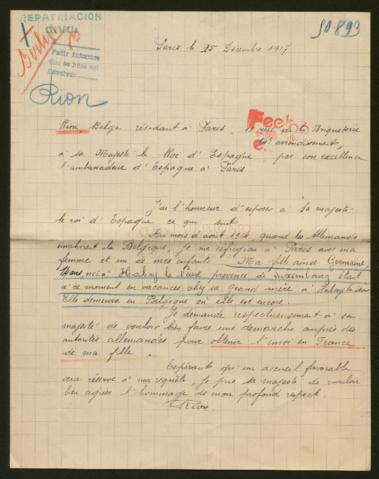 REPATRIACIÓN
CIVIL
50.893
Pedir informes
Rion
Paris le 25 Décembre 1917
Rion Belge résidant à Paris, rue de la
arrondissement,
à sa Majesté le Roi d'Espagne par son excellence
l'ambassadeur d'Espagne à Paris
J'ai l'honneur d'exposer à sa majesté
le roi d'Espagne ce qui suit.
Au mois d'août 1914 quand les Allemands
envahirent la Belgique, je me réfugiai à Paris avec ma
femme et un de mes enfants. Ma fille aînée Germaine
née à province de Luxembourg était
à ce moment en vacances chez sa grand mère à
Elle demeura en Belgique où elle est encore.
Je demande respectueusement à sa
majesté de vouloir bien faire une démarche auprès des
autorités allemandes pour obtenir l'envoi en France
de ma fille.
Espérant qu'un accueil favorable
sera réservé à ma requête, je prie sa majesté de vouloir
bien agréer l'hommage de mon profond respect.
Rion